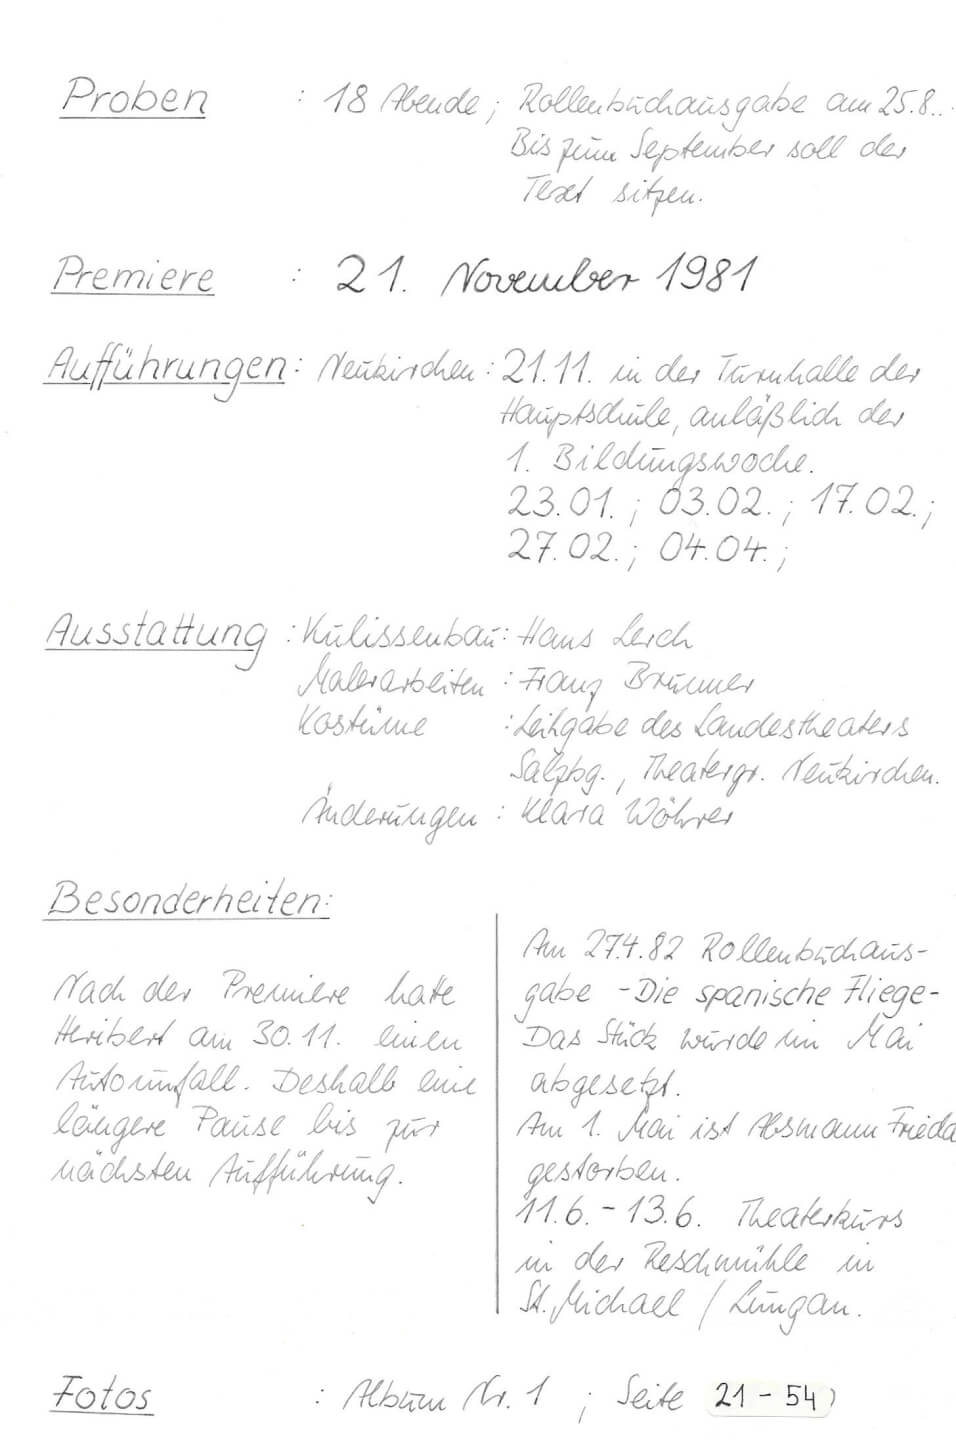 Proben : 18 Abende; Rollenbuchausgabe am 25.8..
Bis zum September soll der
Text sitzen.
Premiere : 21. November 1981
Aufführungen: Neukirchen: 21.11. in der Turnhalle der
Hauptschule, anläßlich der
1. Bildungswoche.
23.01.; 03.02.; 17.02.;
27.02.; 04.04.;
Ausstattung : Kulissenbau: Hans Lerch
Malerarbeiten : Franz Brunner
Kostüme : Leihgabe des Landestheaters
Salzbg., Theatergr. Neukirchen.
Änderungen : Klara Wöhrer
Besonderheiten:
Nach der Premiere hatte
Heribert am 30.11. einen
Autounfall. Deshalb eine
längere Pause bis zur
nächsten Aufführung.
Am 27.4.82 Rollenbuchaus-
gabe -Die spanische Fliege-
Das Stück wurde im Mai
abgesetzt.
Am 1. Mai ist Absmann Frieda
gestorben.
11.6. - 13.6. Theaterkurs
in der Reschmühle in
St. Michael / Lungau.
Fotos : Album Nr. 1 ; Seite 21 - 54